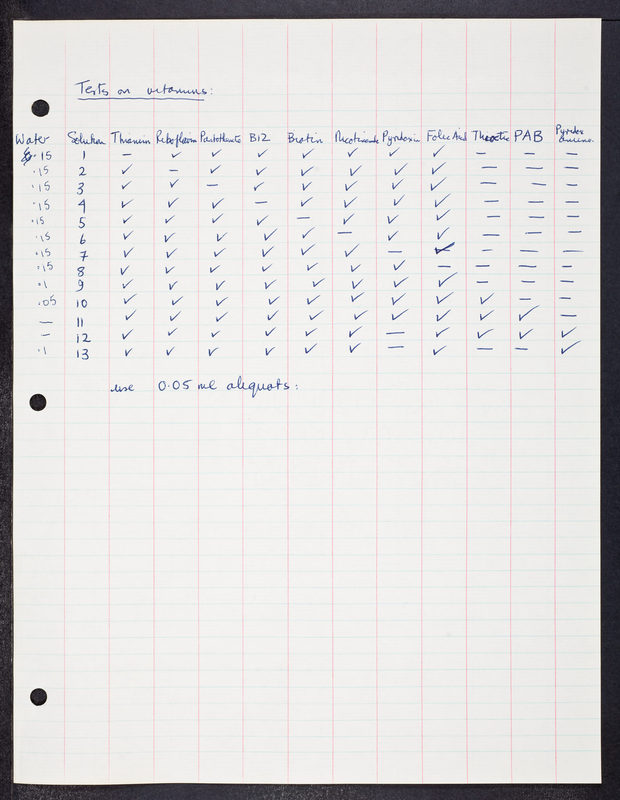 Tests on vitamins:
Water Solution Thiamin Riboflavin Pantothenate B12 Biotin Nicotinamide Pyridoxin Folic Acid Thioctic PAB Pyridox amine.
.15 1 — ✓ ✓ ✓ ✓ ✓ ✓ ✓ — — —
.15 2 ✓ — ✓ ✓ ✓ ✓ ✓ ✓ — — —
.15 3 ✓ ✓ — ✓ ✓ ✓ ✓ ✓ — — —
.15 4 ✓ ✓ ✓ — ✓ ✓ ✓ ✓ — — —
.15 5 ✓ ✓ ✓ ✓ — ✓ ✓ ✓ — — —
.15 6 ✓ ✓ ✓ ✓ ✓ — ✓ ✓ — — —
.15 7 ✓ ✓ ✓ ✓ ✓ ✓ — ✓ — — —
.15 8 ✓ ✓ ✓ ✓ ✓ ✓ ✓ — — — —
.1 9 ✓ ✓ ✓ ✓ ✓ ✓ ✓ ✓ — — —
.05 10 ✓ ✓ ✓ ✓ ✓ ✓ ✓ ✓ ✓ — —
— 11 ✓ ✓ ✓ ✓ ✓ ✓ ✓ ✓ ✓ ✓ —
— 12 ✓ ✓ ✓ ✓ ✓ ✓ — ✓ ✓ ✓ ✓
.1 13 ✓ ✓ ✓ ✓ ✓ ✓ — ✓ — — ✓
use 0.05 ml aliquots: